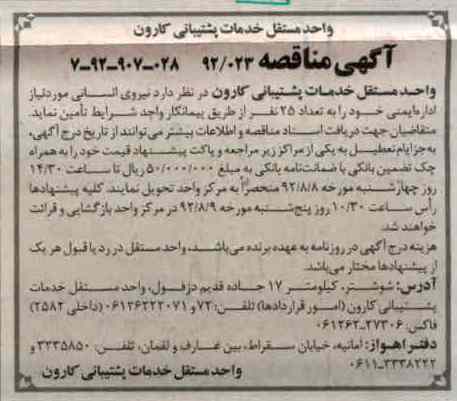 واحد مستقل خدمات پشتیبانی کارون
آگهی مناقصه ۹۲/۰۲۳ ۷-۹۲-۹۰۷-۰۲۸
واحد مستقل خدمات پشتیبانی کارون در نظر دارد نیروی انسانی موردنیاز
اداره‌ایمنی خود را به تعداد ۲۵ نفر از طریق پیمانکار واجد شرایط تأمین نماید.
متقاضیان جهت دریافت اسناد مناقصه و اطلاعات بیشتر می‌توانند از تاریخ درج آگهی،
به‌جز ایام تعطیل به یکی از مراکز زیر مراجعه و پاکت پیشنهاد قیمت خود را به همراه
چک تضمین بانکی یا ضمانت‌نامه بانکی به مبلغ ۵۰/۰۰۰/۰۰۰ ریال تا ساعت ۱۴/۳۰
روز چهارشنبه مورخه ۹۲/۸/۸ منحصراً به مرکز واحد تحویل نمایند. کلیه پیشنهادها
رأس ساعت ۱۰/۳۰ روز پنج‌شنبه مورخه ۹۲/۸/۹ در مرکز واحد بازگشایی و قرائت
خواهند شد.
هزینه درج آگهی در روزنامه به عهده برنده می‌باشد، واحد مستقل در رد یا قبول هر یک
از پیشنهادها مختار می‌باشد.
آدرس: شوشتر، کیلومتر ۱۷ جاده قدیم دزفول، واحد مستقل خدمات
پشتیبانی کارون (امور قراردادها) تلفن: ۷۲ و ۰۶۱۲۶۲۲۲۰۷۱ (داخلی ۲۵۸۲)
فاکس: ۲۷۳۰۶-۰۶۱۲۶۲
دفتر اهواز: امانیه، خیابان سقراط، بین عارف و لقمان، تلفن: ۳۳۳۵۸۵۰ و
۰۶۱۱-۳۳۳۸۲۲۲
واحد مستقل خدمات پشتیبانی کارون